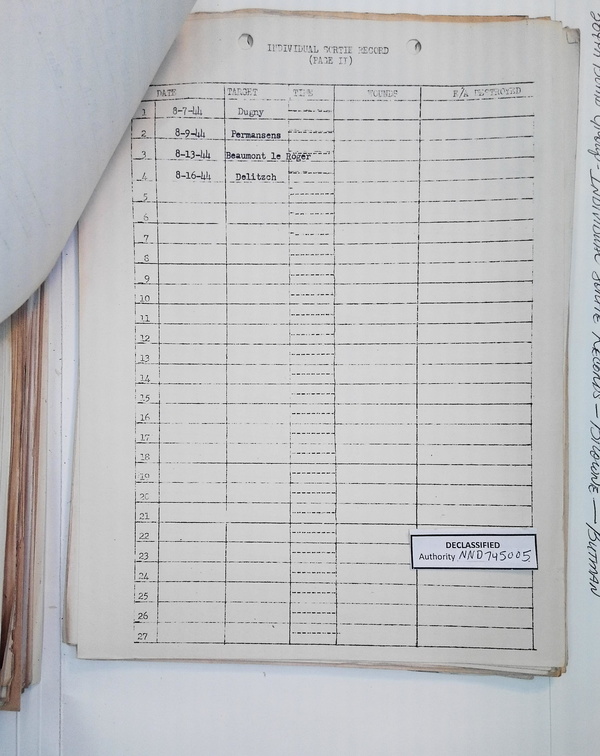 INDIVIDUAL SORTIE RECORD
(PAGE II)
DATE TARGET TIME WOUNDS E/A DESTROYED
1 8-7-44 Dugny
2 8-9-44 Permansens
3 8-13-44 Beaumont le Roger
4 8-16-44 Delitzch
5
6
7
8
9
10
11
12
13
14
15
16
17
18
19
20
21
22
23
24
25
26
27
DECLASSIFIED
Authority NND745005
Bomb Group - Individual Sortie Records -